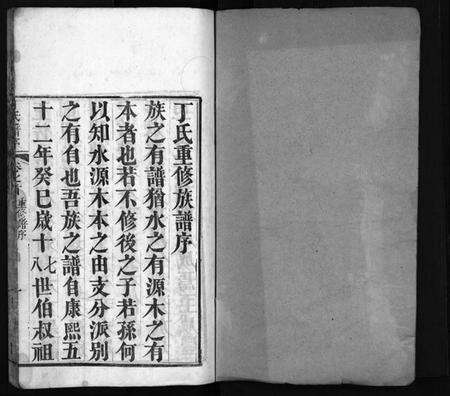 丁氏重修族譜序
族之有譜猶水之有源木之有
本者也若不修後之子若孫何
以知水源木本之由支分派別
之有自也吾族之譜自康熙五
十二年癸巳歲十七八世伯叔祖
重修譜序